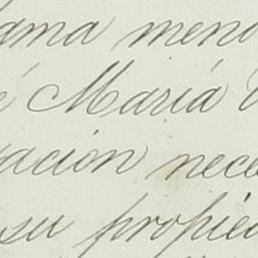 ama meno
é María
ación nece
su propied